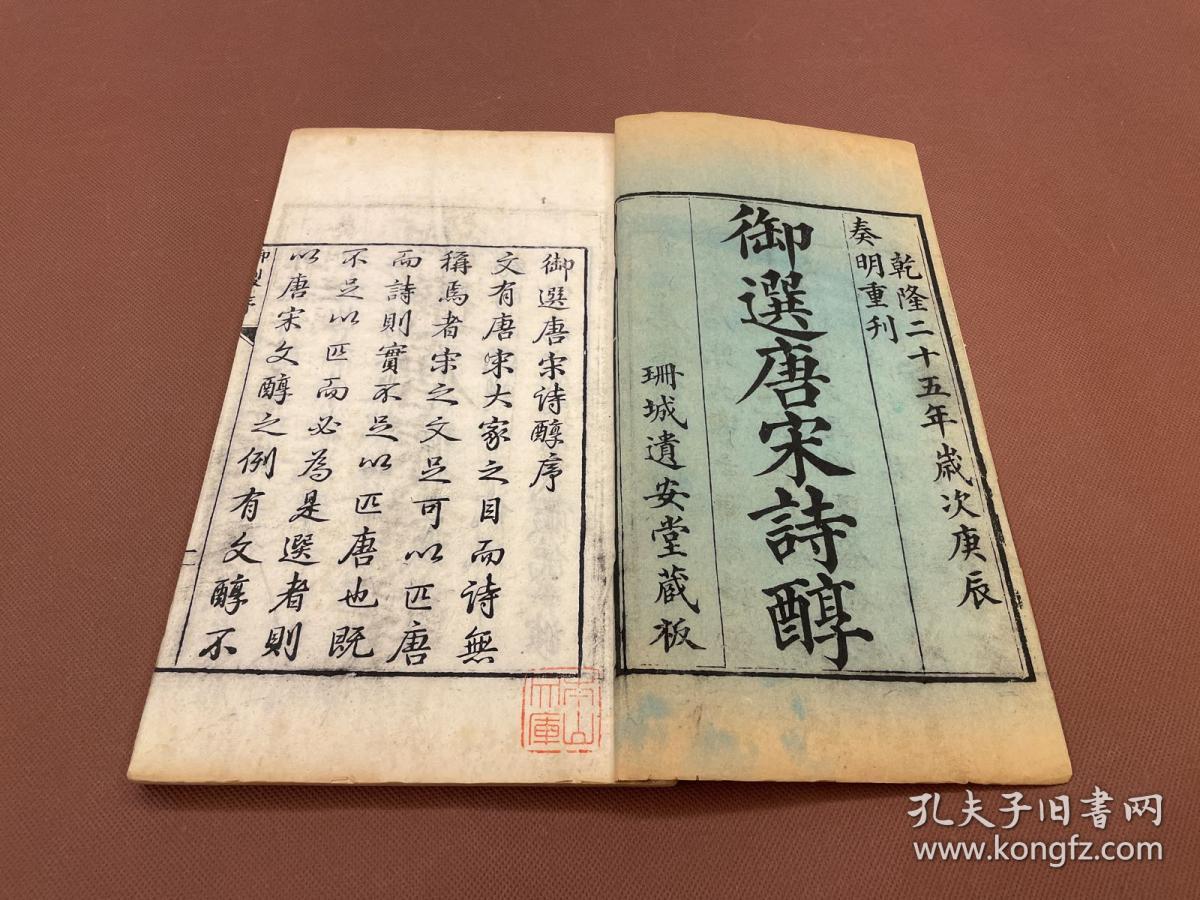 乾隆二十五年歲次庚辰
奏明重刊
御選唐宋詩醇
珊城遺安堂蔵板
御選唐宋詩醇序
文有唐宋大家之目而詩無
稱焉者宋之文足可以匹唐
而詩則實不足以匹唐也既
不足以匹而必為是選者則
以唐宋文醇之例有文醇不
御製序
一
孔夫子旧书网
www.kongfz.com